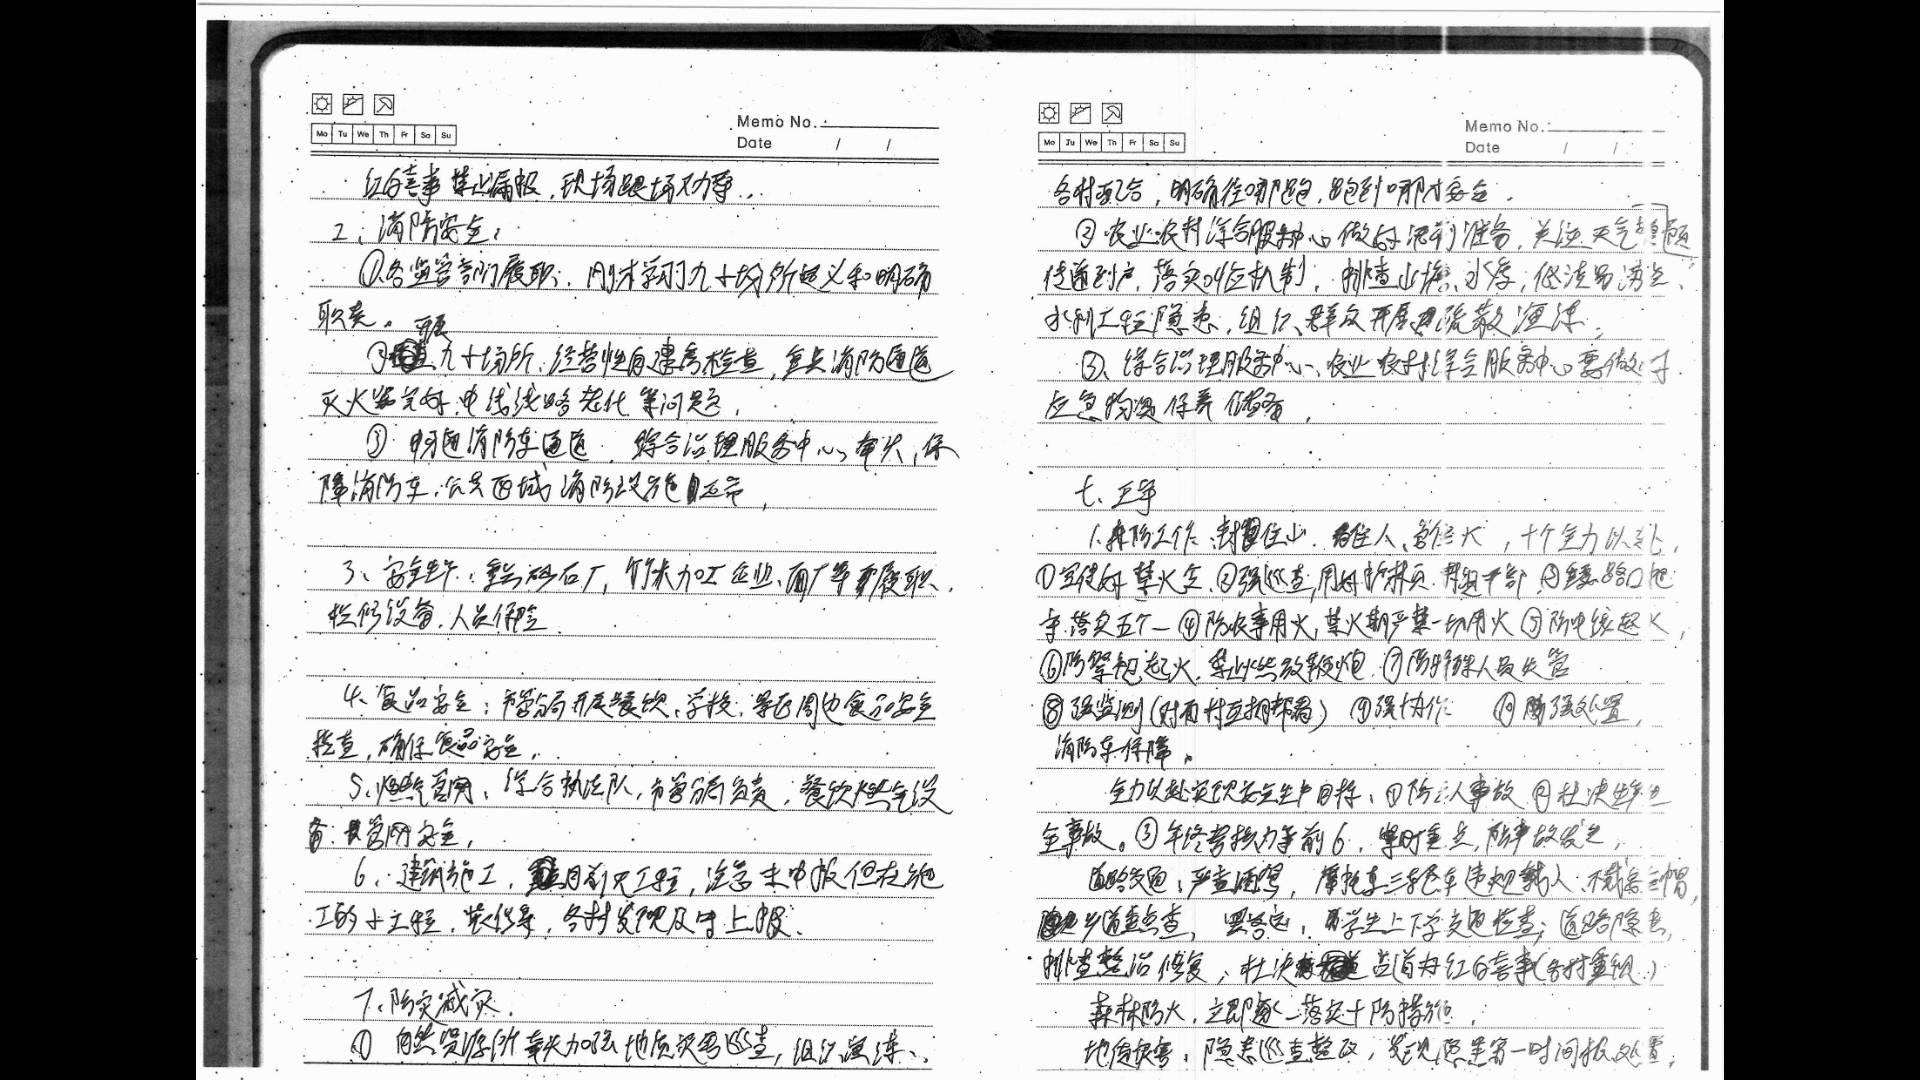 Memo No.
Mo Tu We Th Fr Sa Su
Date / /
红白喜事禁止漏报，现场跟场劝导，
2、消防安全：
①各监管部门履职，刚才学习九小场所定义和明确
职责。
②九小场所、经营性自建房检查，重点消防通道
灭火器完好、电线线路老化等问题，
③明通消防车通道，综合治理服务中心牵头，保
障消防车、公共区域消防设施正常，
3、安全生产：重点砂石厂，竹木加工企业、面厂等要履职、
检修设备，人员保险
4、食品安全：市管分局开展餐饮、学校、景区周边食品安全
检查，确保食品安全，
5、燃气管网、综合执法队，市管分局负责，餐饮燃气设
备、管网安全，
6、建筑施工，目前工程，注意未申报但在施
工的小工程，各村发现及时上报、
7、防灾减灾，
① 自然资源所牵头加强地质灾害巡查，组织演练、
Memo No.
Mo Tu We Th Fr Sa Su
Date / /
各村配合，明确往哪跑，跑到哪才安全，
② 农业农村综合服务中心做好汛前准备，关注天气
传递到户，落实叫应机制，排查山塘、水库，低洼易涝点、
水利工程隐患，组织群众开展疏散演练，
③、综合治理服务中心、农业农村综合服务中心要做好
应急物资保养储备，
七、
1、森防工作：封住山、看住人、管住火，十个全力以赴，
①宣传好禁火令 ②强巡查，用好护林员、村组干部 ③路口把
守，落实五个一 ④防农事用火，禁火期严禁一切用火 ⑤防电线起火，
⑥防祭祀起火，禁止燃放鞭炮 ⑦防特殊人员失管
⑧强监测（对面村互相帮看） ⑨强协作 ⑩强处置，
消防车保障。
全力以赴实现安全生产目标、①防亡人事故 ②杜决生产安
全事故。③年终考核力争前6，掌时重点，防事故发生，
道路交通：严查酒驾，摩托车三轮车违规载人、不戴安全帽，
乡道重点查，学生上下学交通检查；道路隐患，
排查整治修复，杜决占道办红白喜事（各村重视）
森林防火，立即逐一落实十防措施，
地质灾害，隐患巡查整改，发现隐患第一时间报处置，